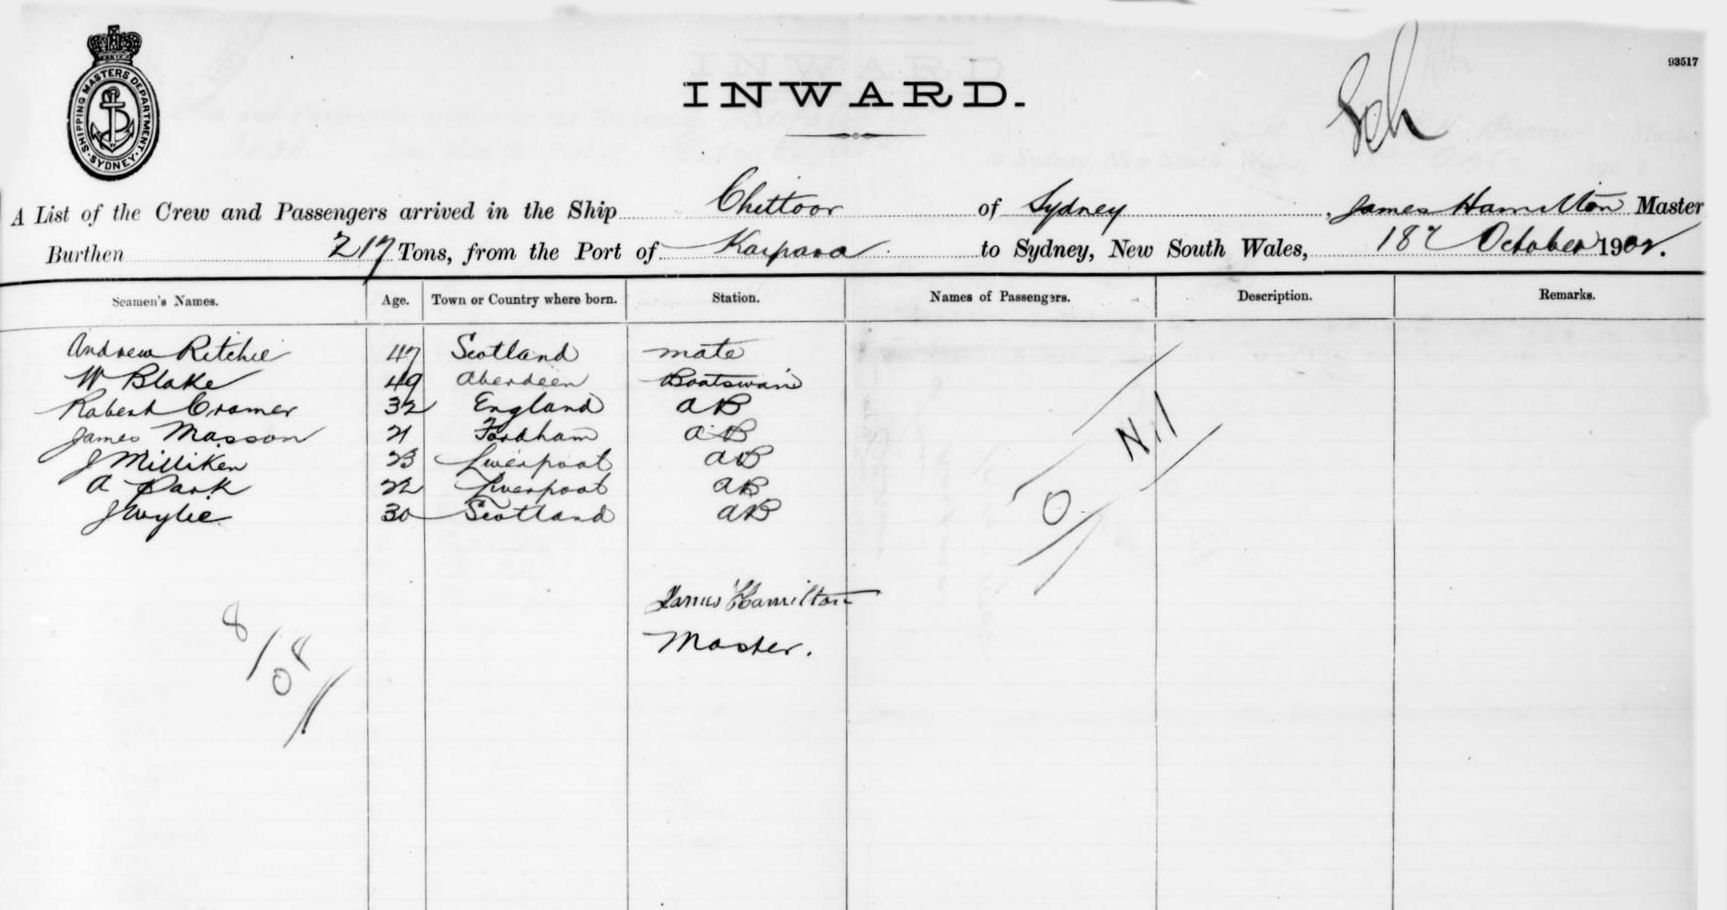 SHIPPING MASTERS DEPARTMENT. SYDNEY.
93517
INWARD.
Sch
A List of the Crew and Passengers arrived in the Ship Chittoor of Sydney, James Hamilton Master
Burthen 217 Tons, from the Port of Kaipara to Sydney, New South Wales, 18 October 1902.
Seamen's Names. Age. Town or Country where born. Station. Names of Passengers. Description. Remarks.
Andrew Ritchie 47 Scotland mate
W Blake 49 Aberdeen Boatswain
Robert Cramer 32 England AB
James Masson 21 Fordham AB
J Milliken 23 Liverpool AB
A Park 22 Liverpool AB
J Wylie 30 Scotland AB
Nil
0
James Hamilton
Master.
8/08